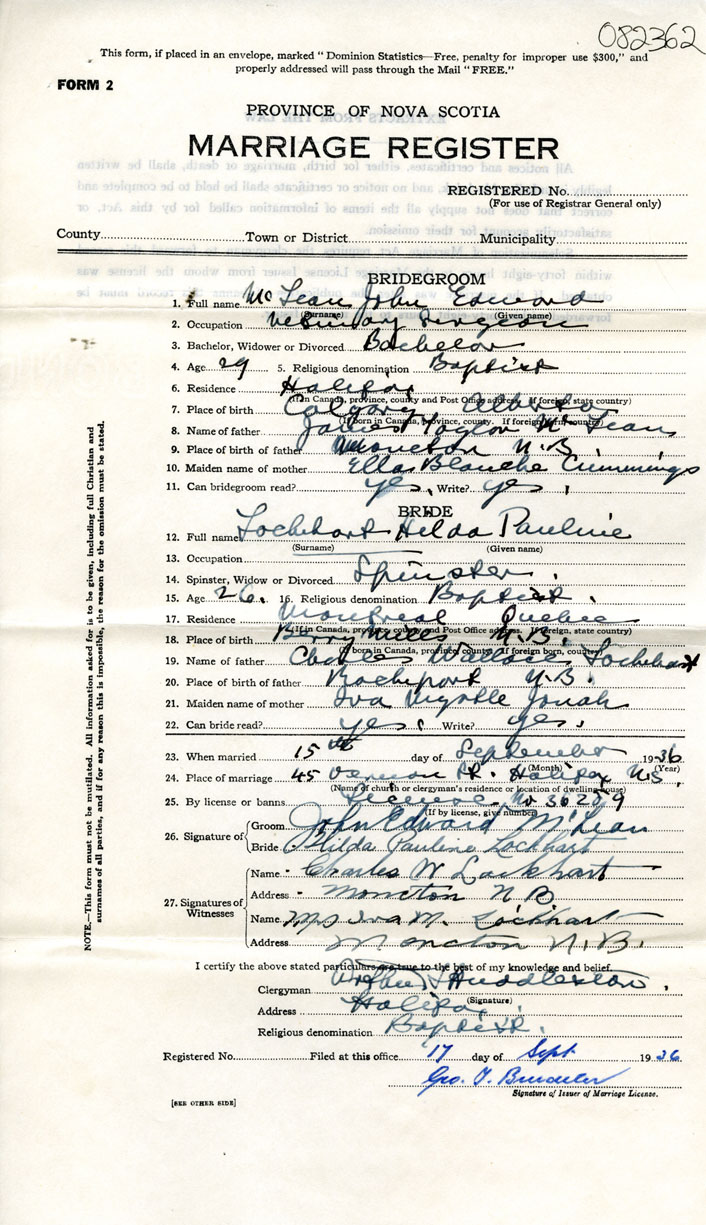 082362
This form, if placed in an envelope, marked " Dominion Statistics—Free, penalty for improper use $300," and
properly addressed will pass through the Mail " FREE."
FORM 2
PROVINCE OF NOVA SCOTIA
MARRIAGE REGISTER
REGISTERED No.
(For use of Registrar General only)
County Town or District Municipality
BRIDEGROOM
1. Full name McLean John Edward
(Surname) (Given name)
2. Occupation Surgeon
3. Bachelor, Widower or Divorced Bachelor
4. Age 29 5. Religious denomination Baptist
6. Residence Halifax
(If in Canada, province, county and Post Office address. If foreign, state country)
7. Place of birth Calgary Alberta
(If born in Canada, province, county. If foreign born, country)
8. Name of father James Taylor McLean
9. Place of birth of father Moncton N.B.
10. Maiden name of mother Ella Blanche Cummings
11. Can bridegroom read? yes, Write? yes.
BRIDE
12. Full name Lockhart Hilda Pauline
(Surname) (Given name)
13. Occupation
14. Spinster, Widow or Divorced Spinster.
15. Age 26. 16. Religious denomination Baptist.
17. Residence Montreal Quebec
(If in Canada, province, county and Post Office address, If foreign, state country)
18. Place of birth Berry Mills N.B.
(If born in Canada, province, county. If foreign born, country)
19. Name of father Charles Wallace Lockhart
20. Place of birth of father N.B.
21. Maiden name of mother Iva Myrtle Jonah
22. Can bride read? yes, Write? yes.
23. When married 15th day of September 1936
(Month) (Year)
24. Place of marriage 45 Vernon St. Halifax N.S.
(Name of church or clergyman's residence or location of dwelling house)
25. By license or banns License No 36289
(If by license, give number)
26. Signature of Groom John Edward McLean
Bride Hilda Pauline Lockhart
27. Signatures of Witnesses
Name Charles W Lockhart
Address Moncton N B
Name Mrs Iva M. Lockhart
Address Moncton N.B.
I certify the above stated particulars are true to the best of my knowledge and belief.
Clergyman Huddleston.
(Signature)
Address Halifax
Religious denomination Baptist.
Registered No. Filed at this office 17 day of Sept 1936
Geo. T.
Signature of Issuer of Marriage License.
[SEE OTHER SIDE]
NOTE.—This form must not be mutilated. All information asked for is to be given, including full Christian and
surnames of all parties, and if for any reason this is impossible, the reason for the omission must be stated.